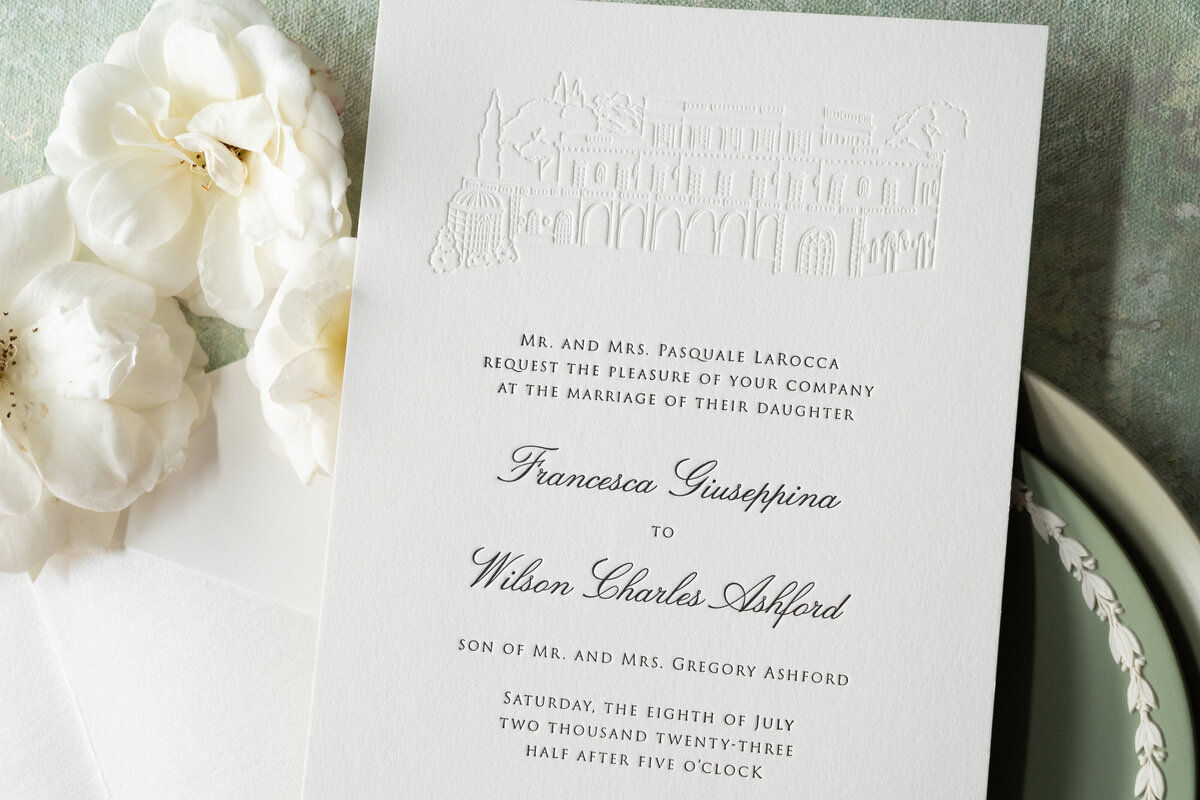 Mr. and Mrs. Pasquale LaRocca
request the pleasure of your company
at the marriage of their daughter
Francesca Giuseppina
to
Wilson Charles Ashford
son of Mr. and Mrs. Gregory Ashford
Saturday, the eighth of July
two thousand twenty-three
half after five o'clock